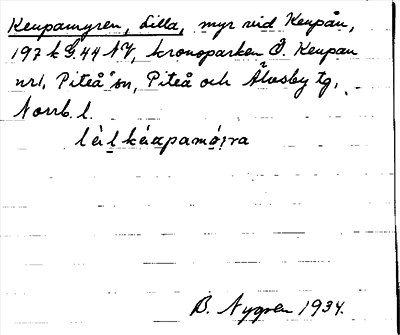 Keupamyren, Lilla, myr vid Keupån,
197 k G. 44 NV, kronoparken Ö. Keupan
nr 1, Piteå sn, Piteå och Älvsby tg,
Norrb. l.
lèil kéupamó:ra
B. Nygren 1934.